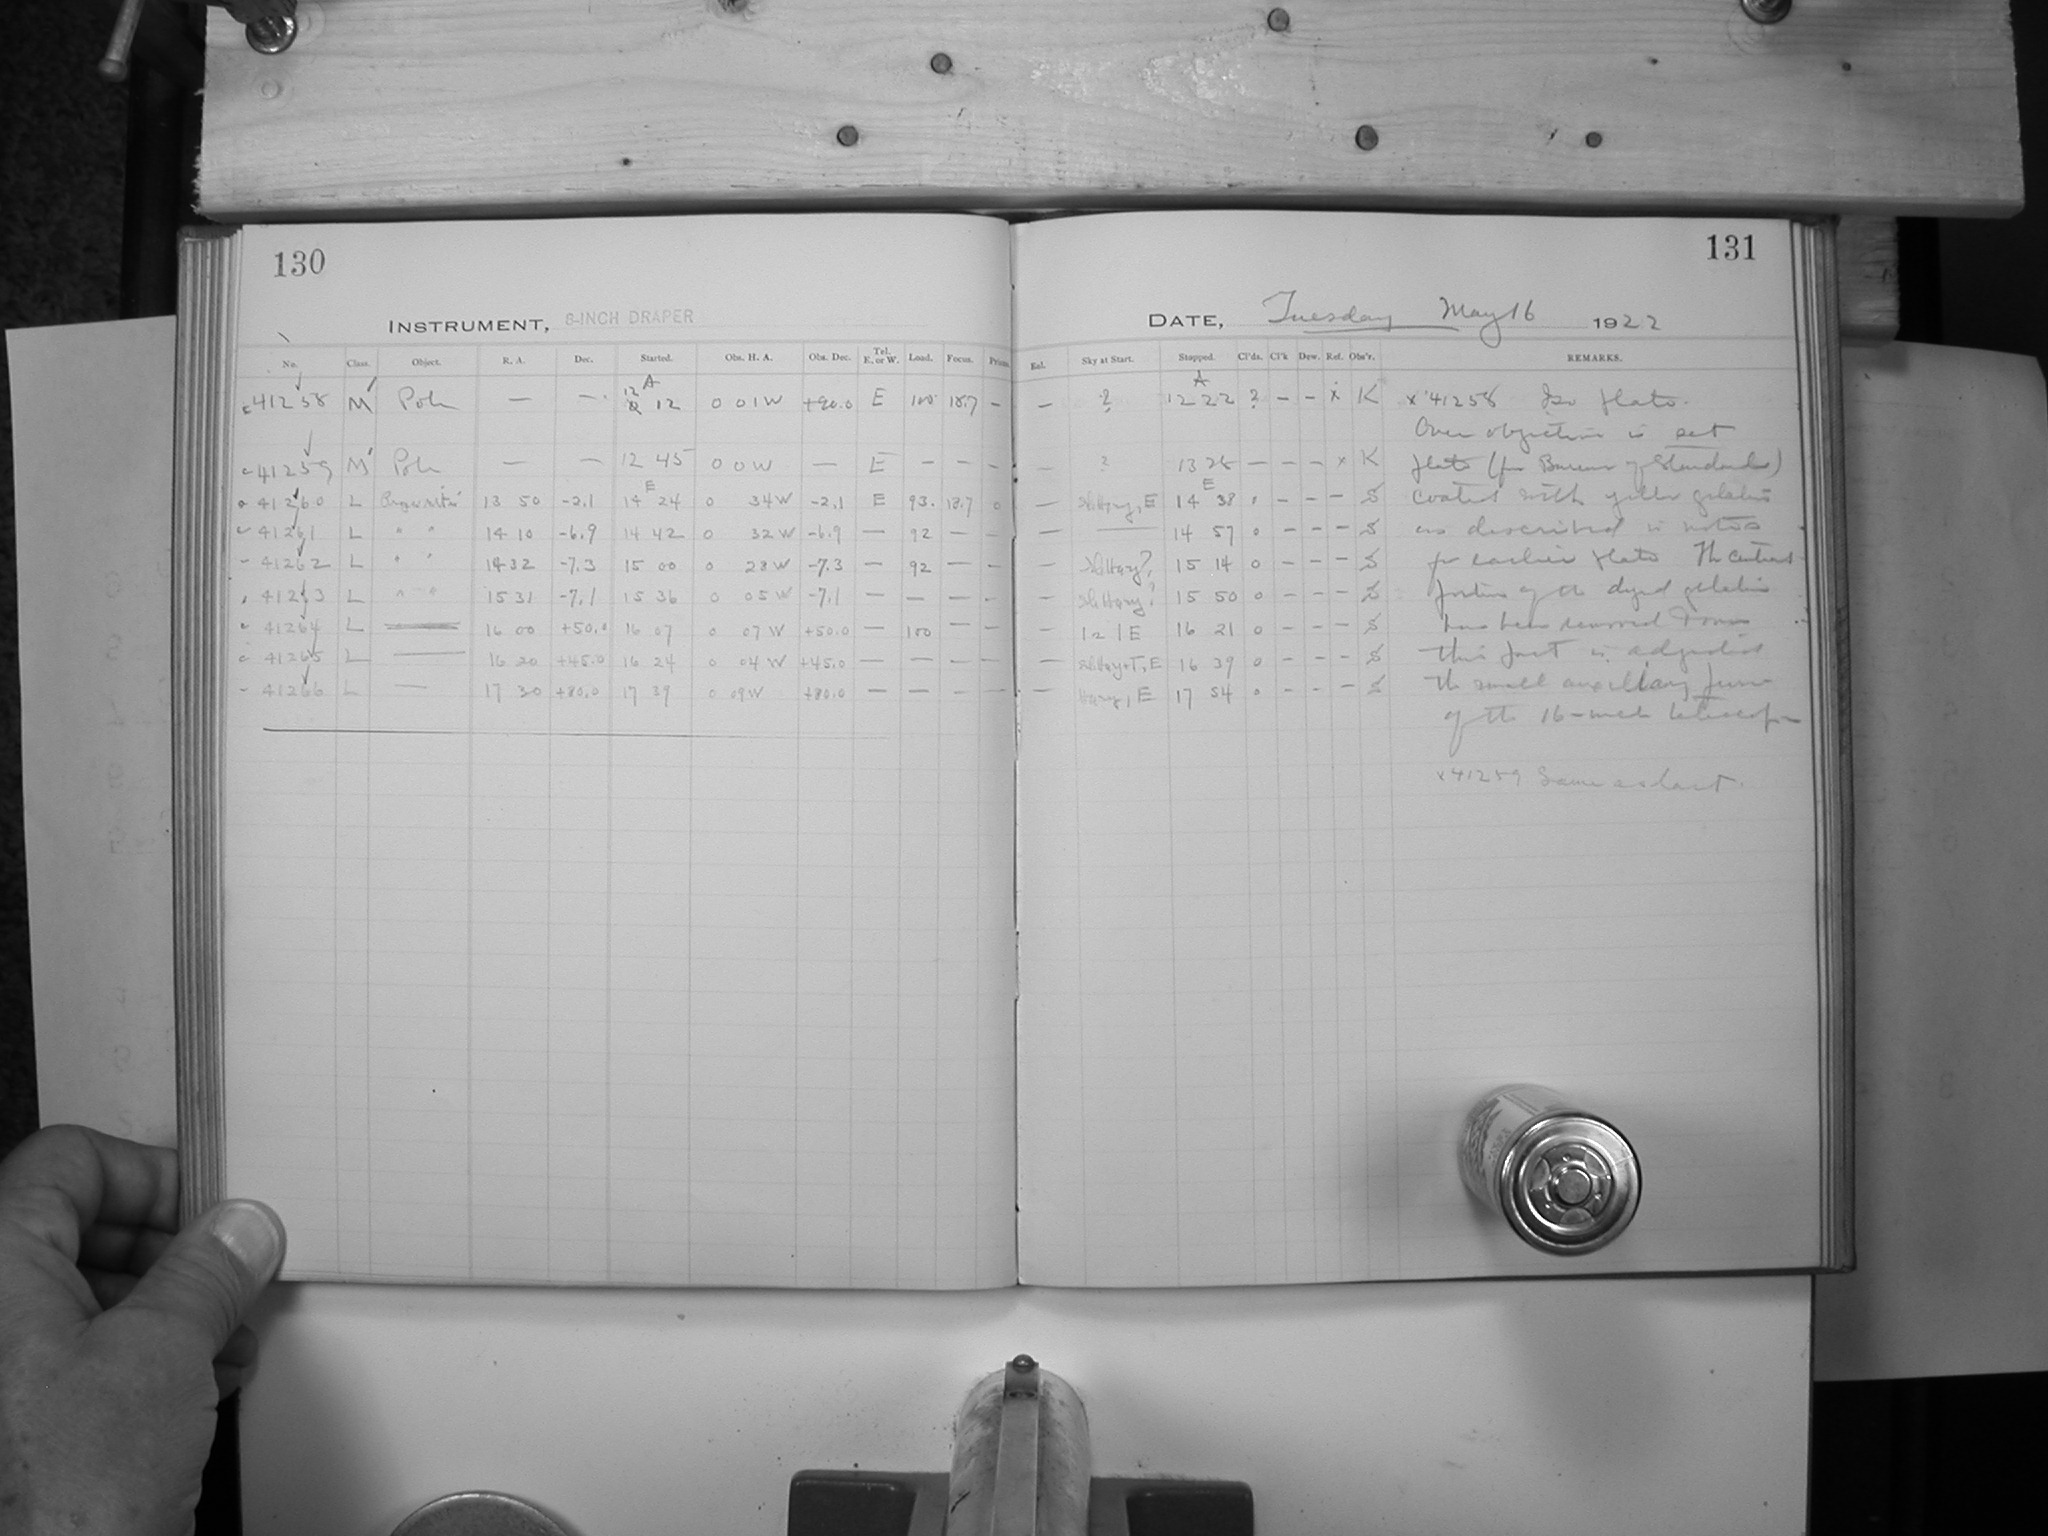 130
131
INSTRUMENT, 8-INCH DRAPER
DATE, Tuesday May 16 1922
No. Class. Object. R. A. Dec. Started. Obs. H. A. Obs. Dec. Tel. E. or W. Load. Focus. Prism
Enl. Sky at Start. Stopped. Cl'ds. Cl'k Dew. Ref. Obs'r. REMARKS.
A
A
41258 M' Pole — — 12 12 0 01W +90.0 E 100 18.7 —
— ? 12 22 ? — — x K x 41258 Iso plate.
Over objective is set
41259 M' Pole — — 12 45 0 0 W — E — — —
— ? 13 25 — — — x K plate (for Bureau of Standards)
E
E
41260 L 13 50 -2.1 14 24 0 34W -2.1 E 93. 18.7 0
— Sl. Hazy, E 14 38 0 — — — S coated with yellow gelatin
41261 L " " 14 10 -6.9 14 42 0 32W -6.9 — 92 — —
— — 14 57 0 — — — S as described in notes
41262 L " " 14 32 -7.3 15 00 0 28W -7.3 — 92 — —
— Sl. Hazy?, 15 14 0 — — — S for earlier plate The central
41263 L " " 15 31 -7.1 15 36 0 05W -7.1 — — — —
— Sl. Hazy? 15 50 0 — — — S portion of the dyed gelatin
41264 L 16 00 +50.0 16 07 0 07W +50.0 — 100 — —
— 1 2 1 E 16 21 0 — — — S has been removed
41265 L — 16 20 +45.0 16 24 0 04W +45.0 — — — —
— E 16 39 0 — — — S this part is adjusted
41266 L — 17 30 +80.0 17 39 0 09W +80.0 — — — —
— Hazy, E 17 54 0 — — — S the small auxiliary
of the 16-inch telescope
x 41259 Same as last.